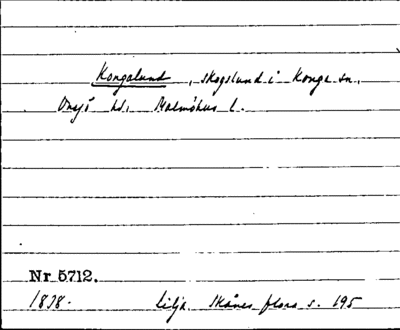 Kongalund, skogslund i Konga sn,
Onsjö hd, Malmöhus l.
Nr 5712.
1878. Lilja. Skånes flora s. 195